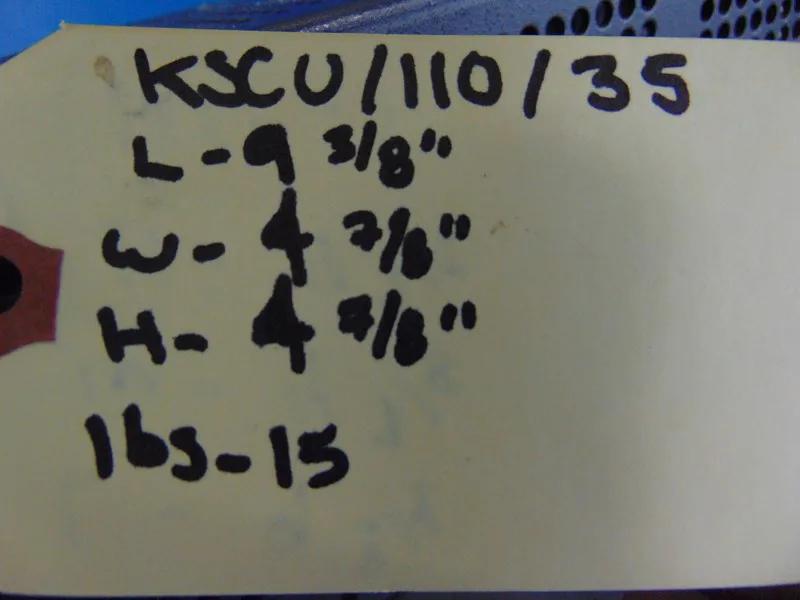 KSCU/110/35
L-9 3/8"
W-4 7/8"
H-4 7/8"
lbs-15